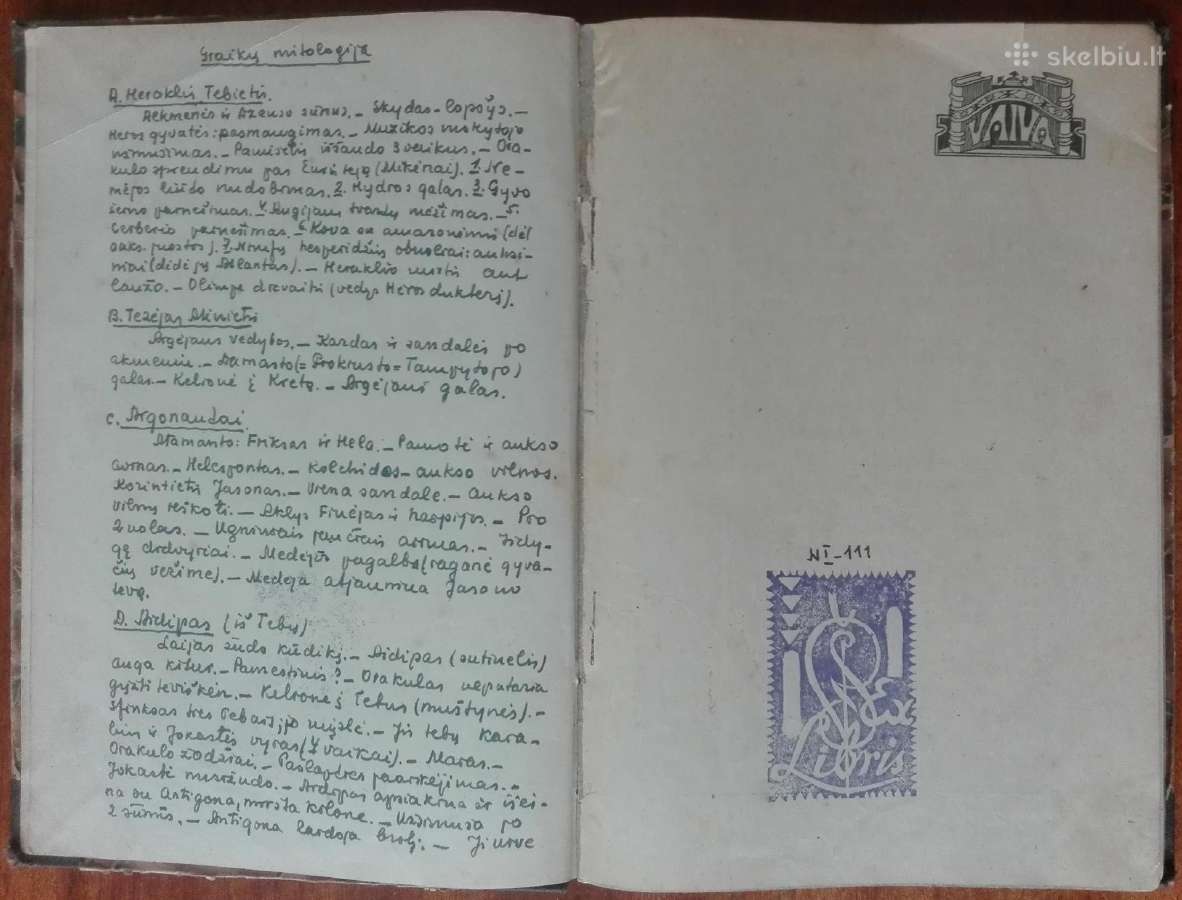 Graikų mitologija
A. Heraklis Tebietis.
Alkmenės ir Dzeuso sūnus. – Skydas – lopšys. –
Heros gyvatės: pasmaugimas. – Muzikos mokytojo
nimušimas. – Pamišėlis iššaudo 3 vaikus. – Ora-
kulo sprendimu pas Euristėją (Mikėnai). 1. Ne-
mėjos liūto nudobimas. 2. Hydros galas. 3. Gyvo
šerno parnešimas. 4. Augijaus tvartų mėžimas. – 5.
Cerberio parnešimas. – 6. Kova su amazonėmis (dėl
juostos). 7. Nimfų hesperidžių obuoliai: auksi-
niai (didėjų Atlantas). – Heraklio mirtis ant
laužo. – Olimpe dievaitis (vedęs Heros dukterį).
B. Tezėjas Atėnietis
Aigėjaus vedybos. – Kardas ir sandalės po
akmeniu. – Damasto (= Prokrusto = Tampytojo)
galas. – Kelionė į Kretą. – Aigėjaus galas.
C. Argonautai
Atamanto: Friksas ir Hela. – Pamotė ir aukso
avinas. – Helespontas. – Kolchidos – aukso vilnos.
Korintietis Jasonas. – Viena sandale. – Aukso
vilnų ieškoti. – Aklys Finėjas ir harpijos. – Pro
2 uolas. – Ugniniais jaučiais arimas. – Išdy-
gę didvyriai. – Medėjos pagalba (raganė gyva-
čių vežime). – Medėja atjaunina Jasono
tėvą.
D. Aidipas (iš Tebų)
Laijas žudo kūdikį. – Aidipas (sutinelis)
auga kitur. – Pamestinis? – Orakulas nepataria
grįžti tėviškėn. – Kelionė į Tebus (muštynės). –
Sfinksas ties Tebais; jo mįslė. – Jis tebų kara-
lius ir Jokastės vyras (4 vaikai). – Maras. –
Orakulo žodžiai. – Paslapties paaiškėjimas. –
Jokastė nusižudo. – Aidipas apsiakina ir išei-
na su Antigona, miršta Kolone. – Užsimuša jo
2 sūnūs. – Antigona laidoja brolį. – Ji urve
skelbiu.lt
VAIVA
NI-111
Ex
Libris